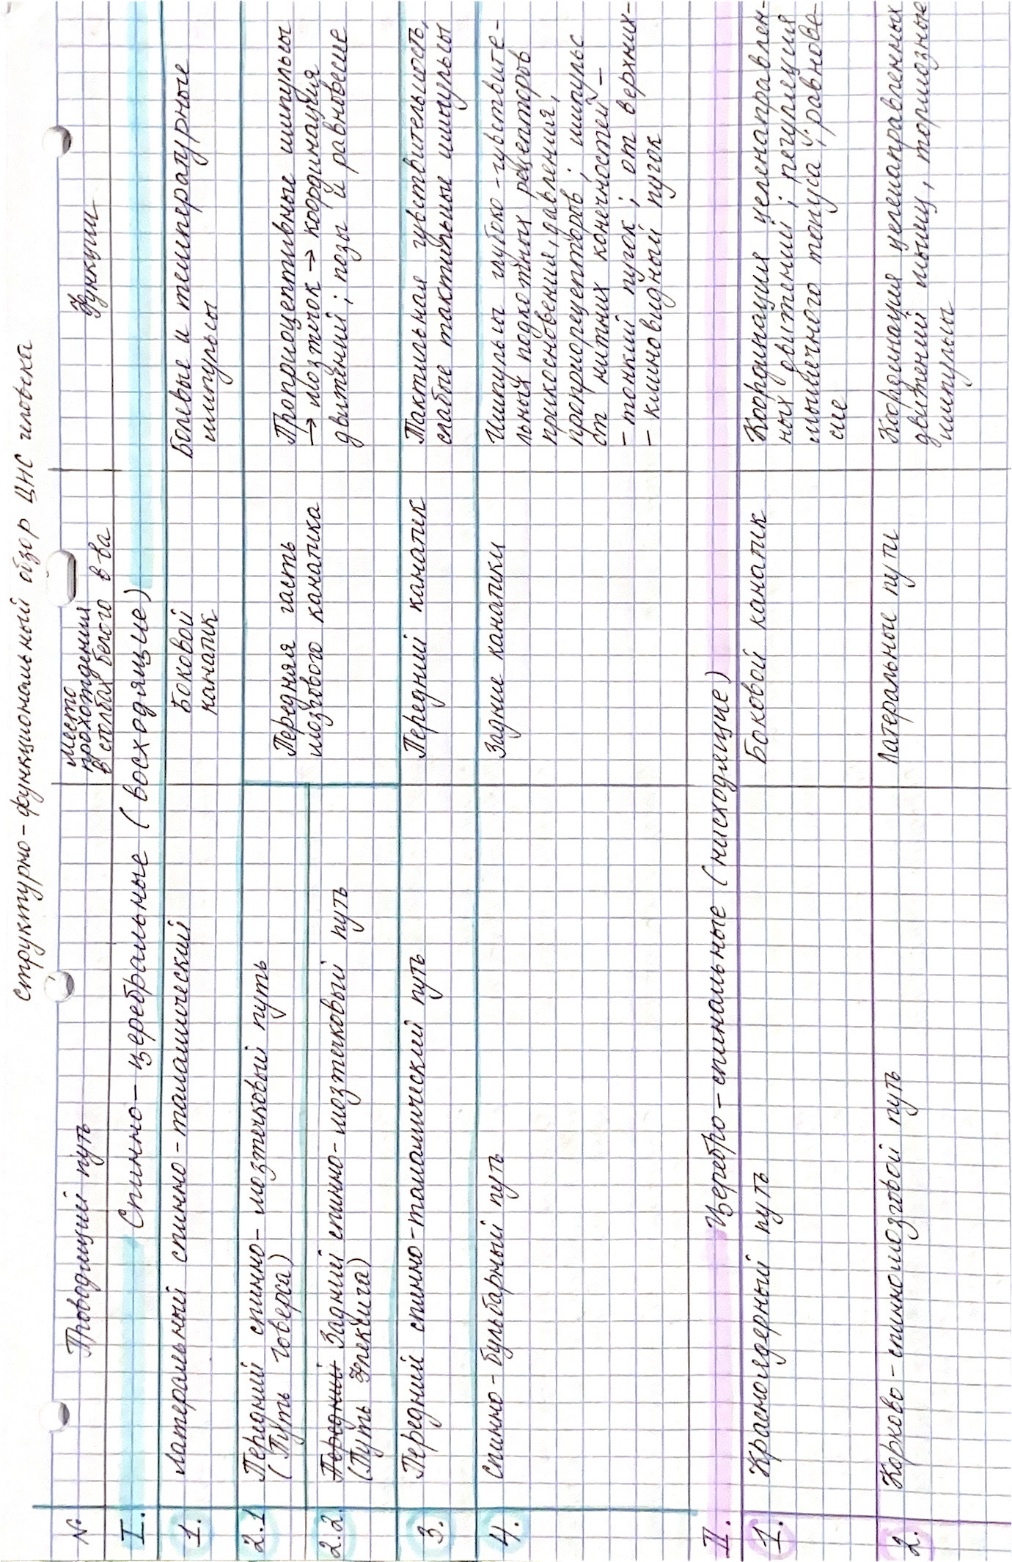 Структурно-функциональный обзор ЦНС человека
№
Проводящий путь
Место
прохождения
в столбах белого в-ва
Функции
I.
Спинно-церебральные (восходящие)
1.
Латеральный спинно-таламический
Боковой
канатик
Болевые и температурные
импульсы
2.1
Передний спинно-мозжечковый путь
(Путь Говерса)
Передняя часть
мозгового канатика
Проприоцептивные импульсы
→ мозжечок → координация
движений; позы и равновесие
2.2.
Передний Задний спинно-мозжечковый путь
(Путь Флексига)
3.
Передний спинно-таламический путь
Передний канатик
Тактильная чувствительность,
слабые тактильные импульсы
4.
Спинно-бульбарный путь
Задние канатики
Импульсы глубоко-чувствите-
льных подкожных рецепторов
прикосновения, давления,
проприорецепторов; импульс
от нижних конечностей -
- тонкий пучок; от верхних-
- клиновидный пучок
II.
Церебро-спинальные (нисходящие)
1.
Красноядерный путь
Боковой канатик
Координация целенаправлен-
ных движений; регуляция
мышечного тонуса и равнове-
сие
2.
Корково-спинномозговой путь
Латеральные пути
Координация целенаправленных
движений мышц, тормозные
импульсы